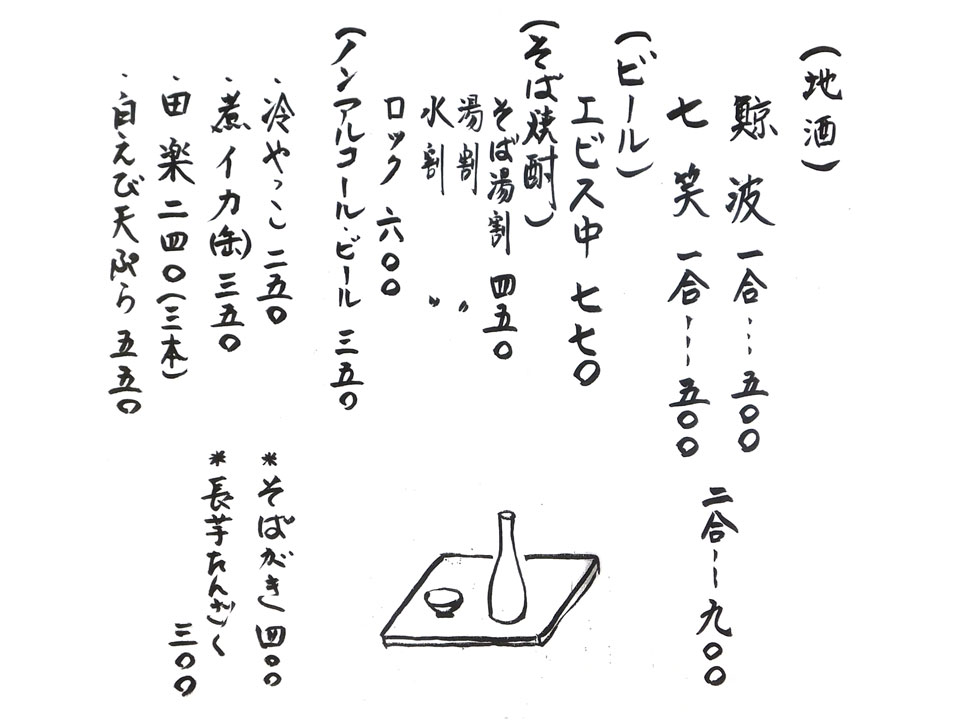 (地酒)
鯨波 一合…五〇〇
七笑 一合…五〇〇
二合…九〇〇
(ビール)
エビス中 七七〇
(そば焼酎)
そば湯割 四五〇
湯割 〃
水割 〃
ロック 六〇〇
(ノンアルコール・ビール 三五〇
・冷やっこ 二五〇
・煮イカ(缶) 三五〇
・田楽 二四〇(三本)
・白えび天ぷら 五五〇
*そばがき 四〇〇
*長芋たんざく
三〇〇